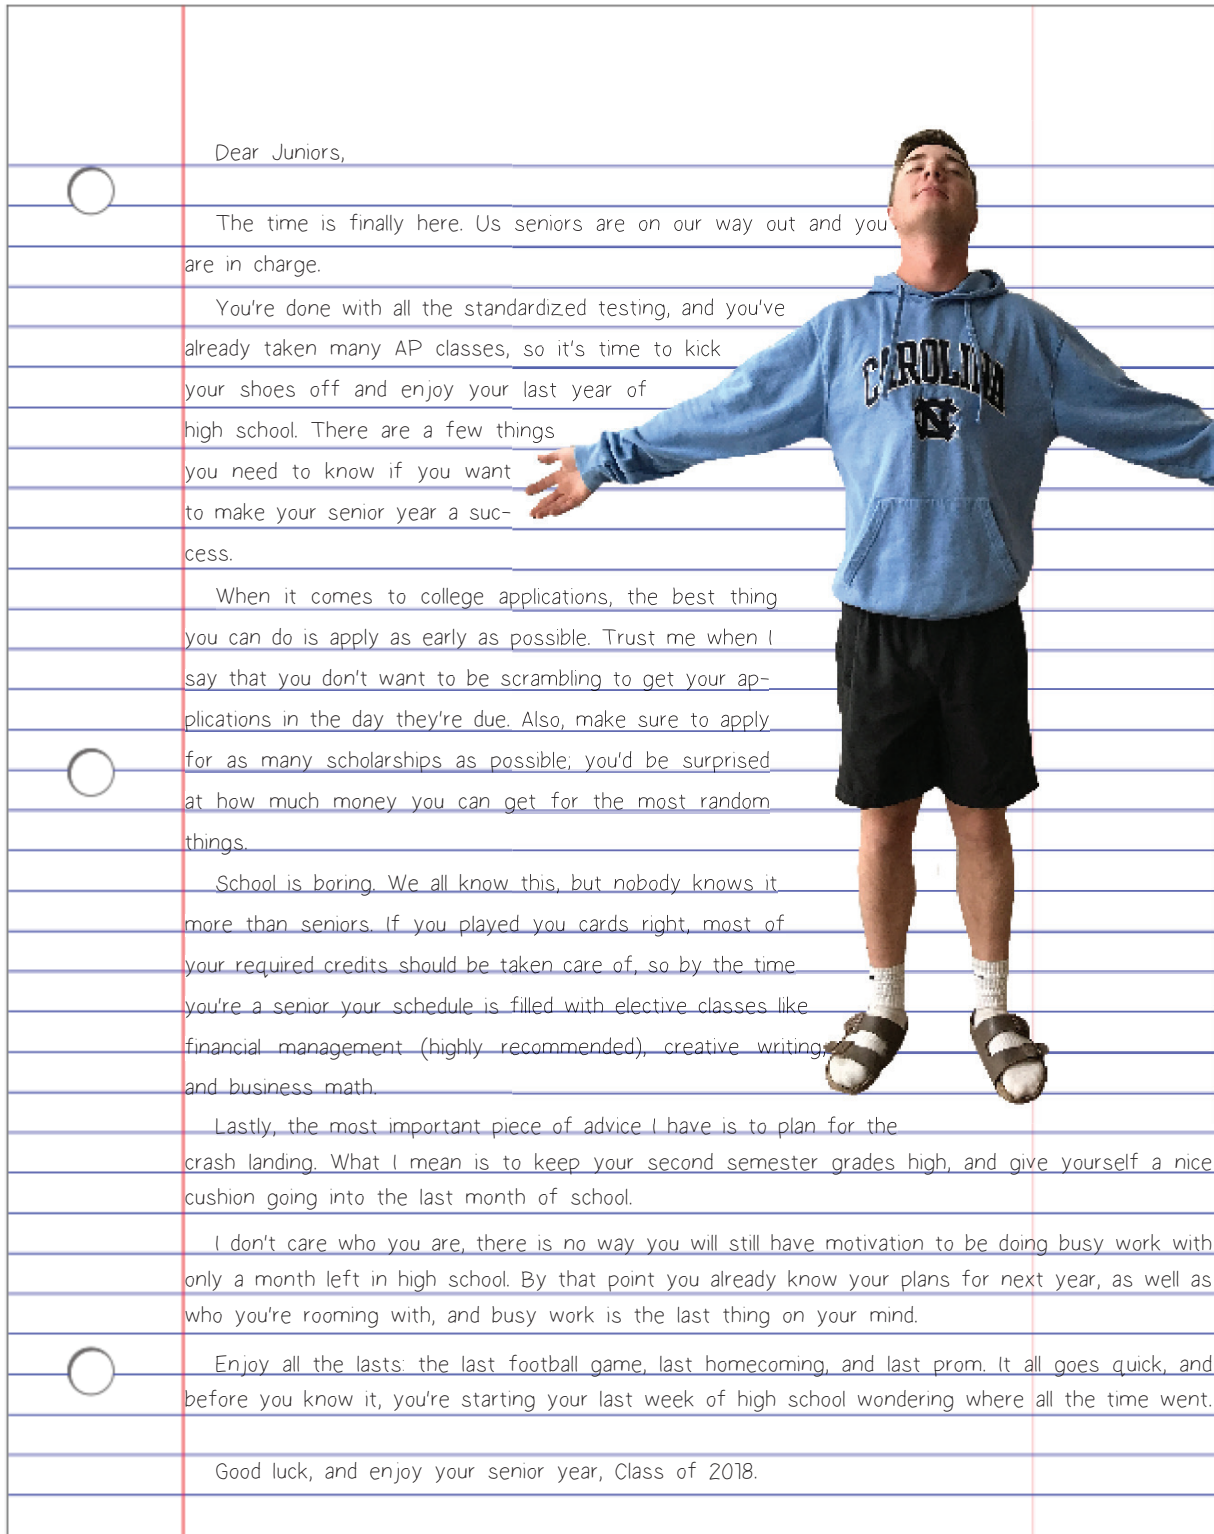 Dear Juniors,
The time is finally here. Us seniors are on our way out and you
are in charge.
You're done with all the standardized testing, and you've
already taken many AP classes, so it's time to kick
your shoes off and enjoy your last year of
high school. There are a few things
you need to know if you want
to make your senior year a suc-
cess.
CAROLINA
NC
When it comes to college applications, the best thing
you can do is apply as early as possible. Trust me when I
say that you don't want to be scrambling to get your ap-
plications in the day they're due. Also, make sure to apply
for as many scholarships as possible; you'd be surprised
at how much money you can get for the most random
things.
School is boring. We all know this, but nobody knows it
more than seniors. If you played you cards right, most of
your required credits should be taken care of, so by the time
you're a senior your schedule is filled with elective classes like
financial management (highly recommended), creative writing,
and business math.
Lastly, the most important piece of advice I have is to plan for the
crash landing. What I mean is to keep your second semester grades high, and give yourself a nice
cushion going into the last month of school.
I don't care who you are, there is no way you will still have motivation to be doing busy work with
only a month left in high school. By that point you already know your plans for next year, as well as
who you're rooming with, and busy work is the last thing on your mind.
Enjoy all the lasts: the last football game, last homecoming, and last prom. It all goes quick, and
before you know it, you're starting your last week of high school wondering where all the time went.
Good luck, and enjoy your senior year, Class of 2018.